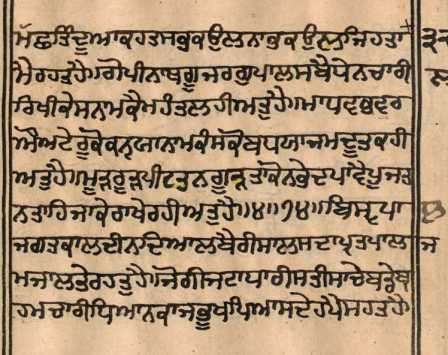 ਮੱਛਤਿੰਦੂਆਕਹਤਸਭੁਕਉਲਨਾਭੁਕਉਲਜਿਹਤਾ
ਮੈਰਹਤੁਹੈ॥ਗੋਪੀਨਾਥਗੂਜਰਗੁਪਾਲਸਬੈਧੇਨਚਾਰੀ
ਰਿਖੀਕੇਸਨਾਮਕੈਮਹੰਤਲਹੀਅਤੁਹੈ॥ਮਾਧਵਭਵਰ
ਔਅਟੇਰੂਕੋਕਨ੍ਯਾਨਾਮਕੰਸਕੋਬਧਯਾਜਮਦੂਤਕਹੀ
ਅਤੁਹੈ॥ਮੂੜ੍ਰੂੜ੍ਪੀਟਤੁਨਗੂੜ੍ਤਾਕੋਨਭੇਦਪਾਵੈਪੂਜਤ
ਨਤਾਹਿਜਾਕੇਰਾਖੇਰਹੀਅਤੁਹੈ॥੪॥੭੪॥ਬਿਸ੍ਵਪਾ
ਜਗਤਕਾਲਦੀਨਦਿਆਲਬੈਰੀਸਾਲਸਦਾਪ੍ਰਤਪਾਲ ਜ
ਮਜਾਲਤੇਰਹਤੁਹੈ॥ਜੋਗੀਜਟਾਧਾਰੀਸਤੀਸਾਚੇਬਡੇਬ੍ਰ
ਹਮਚਾਰੀਧਿਆਨਕਾਜਭੂਖਪਿਆਸਦੇਹਪੈਸਹਤਹੈ